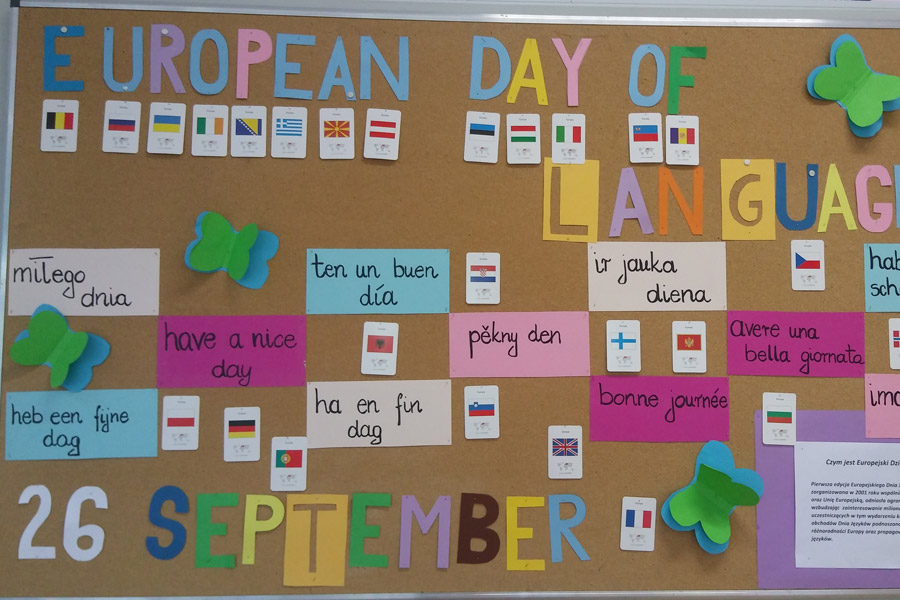 EUROPEAN DAY OF
LANGUAG
miłego
dnia
ten un buen
día
ir jauka
diena
hab
sch
have a nice
day
pěkny den
avere una
bella giornata
heb een fijne
dag
ha en fin
dag
bonne journée
ima
26 SEPTEMBER
Czym jest Europejski Dzi
Pierwsza edycja Europejskiego Dnia
zorganizowana w 2001 roku wspóln
oraz Unię Europejską, odniosła ogro
wzbudzając zainteresowanie milion
uczestniczących w tym wydarzeniu k
obchodów Dnia Języków podnoszon
różnorodności Europy oraz propago
języków.